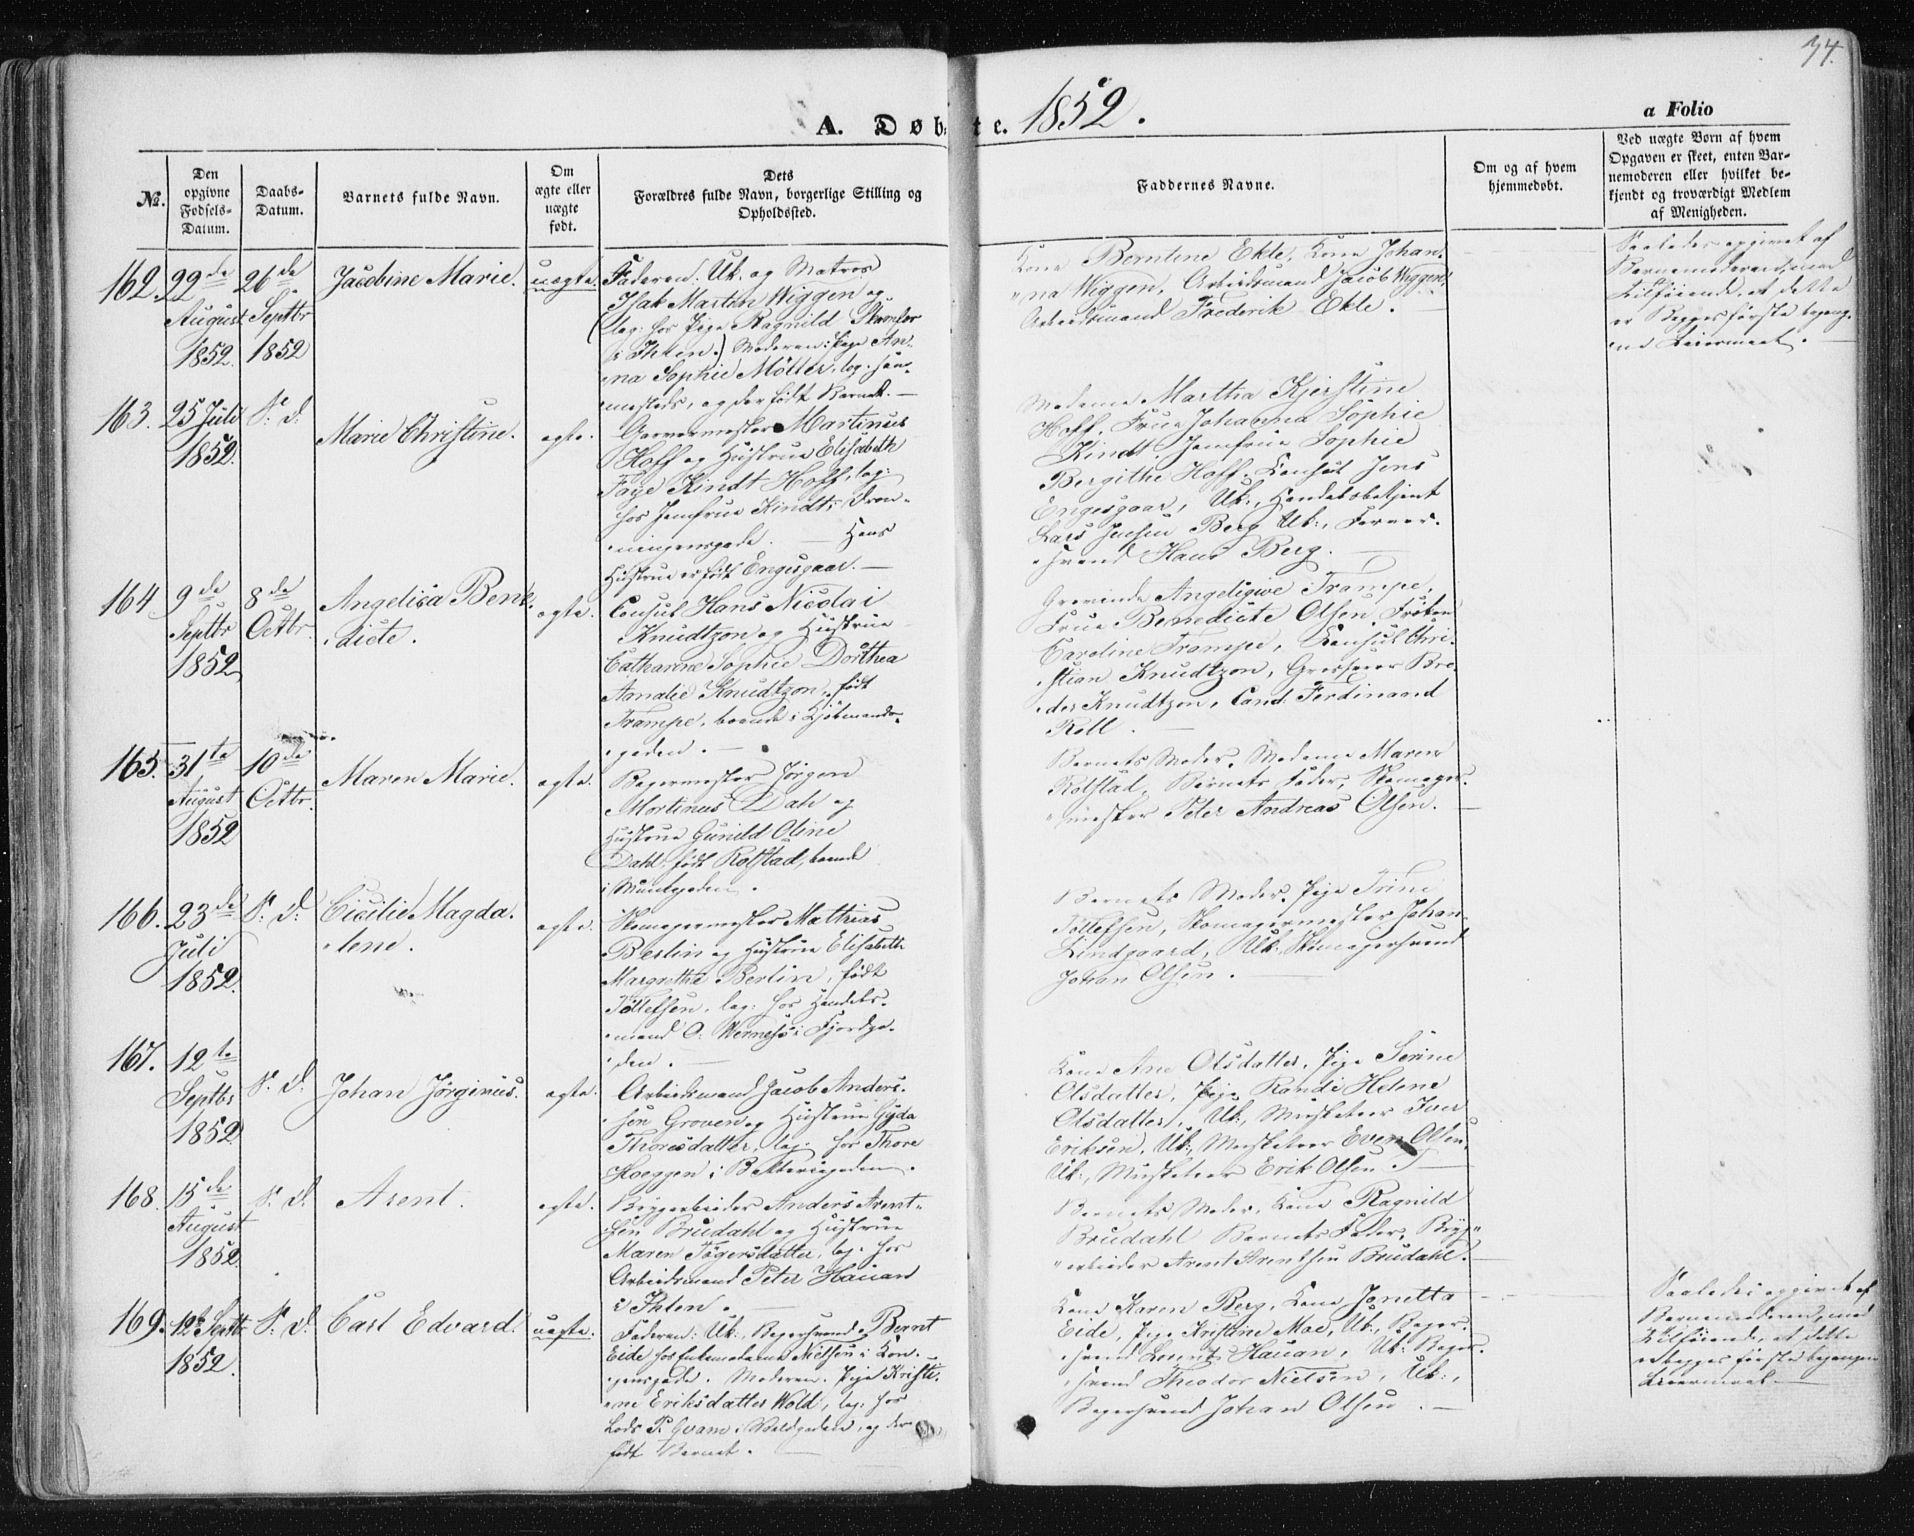 74.
A. Døbte. 1852.
a Folio
No.
Den opgivne Fødsels-Datum.
Daabs-Datum.
Barnets fulde Navn.
Om ægte eller uægte født.
Dets Forældres fulde Navn, borgerlige Stilling og Opholdssted.
Faddernes Navne.
Om og af hvem hjemmedøbt.
Ved uægte Børn af hvem Opgaven er skeet, enten Barnemoderen eller hvilket bekjendt og troværdigt Medlem af Menigheden.
162. 22de August 1852. 26de Septbr 1852
Jacobine Marie. uægte.
Faderen: Uk. og Matros
Isak Martin Wiggen og
log: hos Pige Ragnild
i Ihlen.) Moderen: Pige An-
na Sophie Möller, log: sam-
mesteds, og der født Barnet. —
Kone Berntine Ekle, Kone Johan-
na Wiggen, Arbeidsmand Jacob Wiggen,
Arbeidsmand Frederik Ekle.
Saaledes opgivet af
Barnemoderen, med
Tilføiende, at dette
er Begges første begang-
ne Leiermaal. —
163. 25 Juli 1852. S. D.
Marie Christine. ægte.
Garvermester Martinus
Hoff og Hustrue Elisabeth
Faye Kindt Hoff, log:
hos Jomfrue Kindt i Dron-
ningensgade. — Hans
Hustrue er født Engesgaar. —
Madame Martha Kjerstine
Hoff, Frue Johanna Sophie
Kindt, Jomfrue Sophie
Bergithe Hoff, Consul Jens
Engesgaar, Uk:, Handelsbetjent
Lars Jensen Berg, Uk:, Farver-
svend Hans Berg. —
164. 9de Septbr 1852. 8de Octbr.
Angelica Bene-
dicte. ægte.
Consul Hans Nicolai
Knudtzon og Hustrue
Catharine Sophie Dorthea
Amalie Knudtzon, født
Trampe, boende i Kjøbmands-
gaden. —
Grevinde Angeliqive Trampe,
Frue Benedicte Olsen, Frøken
Caroline Trampe, Consul Chri-
stian Knudtzon, Grosserer Bre-
der Knudtzon, Cand. Ferdinand
Roll. —
165. 31te August 1852. 10de Octbr.
Maren Marie. ægte.
Bagermester Jörgen
Martinus Dahl og
Hustrue Gunild Oline
Dahl, født Rolstad, boende
i Munkgaden.
Barnets Moder, Madame Maren
Rolstad, Barnets Fader, Skomager-
mester Peter Andreas Olsen. —
166. 23de Juli 1852. S. D.
Cicilie Magda-
lene. ægte.
Skomagermester Mathias
Berlin og Hustrue Elisabeth
Margretha Berlin, født
Tøllefsen, log: hos Handels-
mand O. Werness i Fjordga-
den. —
Barnets Moder, Pige Trine
Töllefsen, Skomagermester Johan
Lindgaard, Uk: Skomagersvend
Johan Olsen. —
167. 12te Septbr 1852 S. D.
Johan Jørginus. ægte.
Arbeidsmand Jacob Anders-
sen Groven og Hustrue Gyda
Thoresdatter, log: hos Thore
Hoeggen i Batterigaden.
Kone Ane Olsdatter, Pige Serine
Olsdatter, Pige Randi Helene
Olsdatter, Uk:, Musketeer Iver
Eriksen, Uk:, Musketeer Even Olsen,
Uk:, Musketeer Erik Olsen. —
168. 15de August 1852. S. D.
Arent. ægte.
Bryggearbeider Anders Arent-
sen Brudahl og Hustrue
Maren Tögersdatter, log: hos
Arbeidsmand Peter Hauan
i Ihlen. —
Barnets Moder, Kone Ragnild
Brudahl Barnets Fader, Bryg-
arbeider Arent Arentsen Brudahl. —
169. 12te Septbr 1852. S. D.
Carl Edvard. uægte.
Faderen: Uk:, Bagersvend Bernt
Eide hos Enkemadame Nielsen i Kon-
gensgade. Moderen: Pige Kristi-
ane Eriksdatter Wold, log: hos
Lods P. Qvam i Voldgaden, og der
født Barnet. —
Kone Karen Berg, Kone Janetta
Eide, Pige Kristine Moe, Uk:, Bager-
svend Lorents Hauan, Uk: Bager-
svend Theodor Nielsen, Uk:,
Bagersvend Johan Olsen. —
Saaledes opgivet af
Barnemoderen, med
Tilføiende, at dette
er begges første begangne
Leiermaal. —